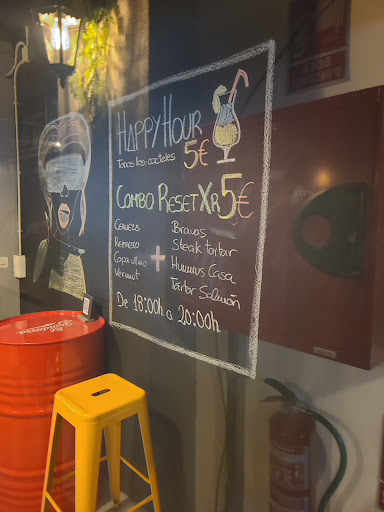 HAPPY HOUR
Todos los cocteles 5€
COMBO RESET XR 5€
Cerveza
Refresco
Copa vino
Vermut
+
Bravas
Steak tartar
Hummus Casa
Tartar Salmón
De 18:00h a 20:00h